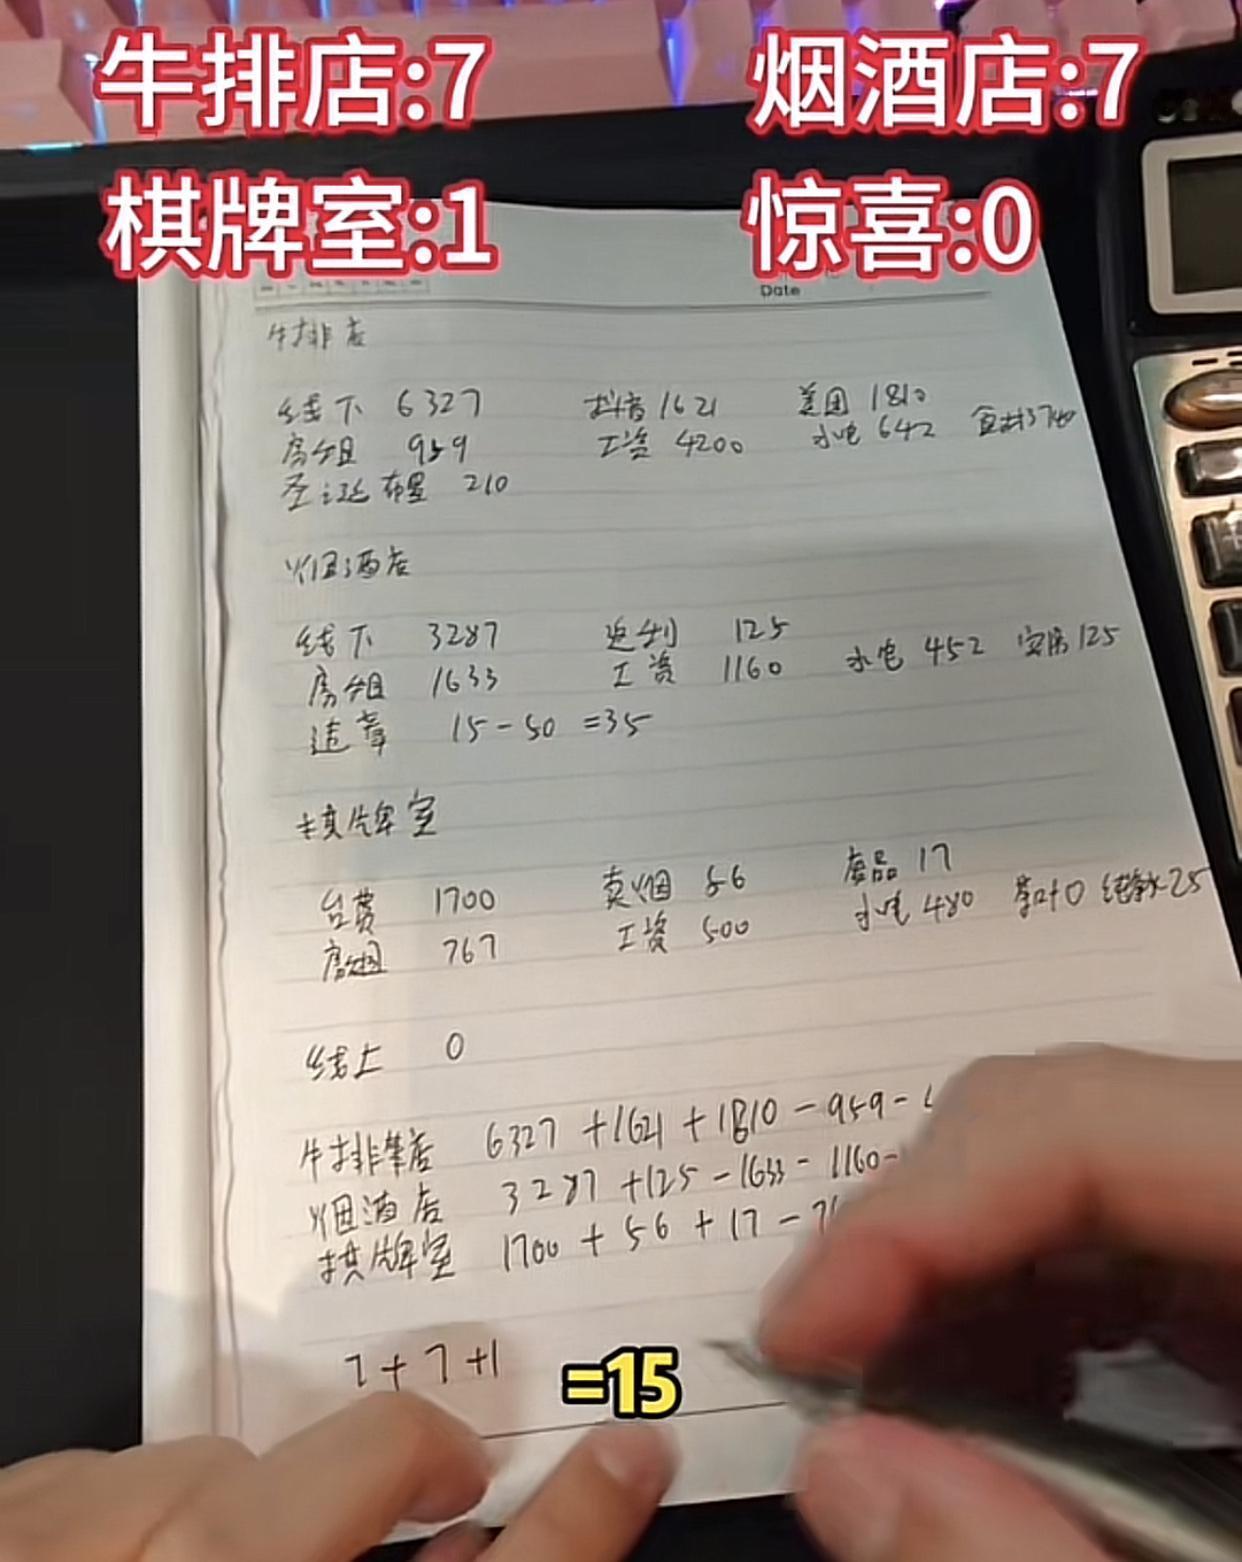 牛排店:7 烟酒店:7
棋牌室:1 惊喜:0
Date
牛排店
线下 6327 抖音 1621 美团 1810
房租 959 工资 4200 水电 642 食材3740
圣诞布置 210
烟酒店
线下 3287 返利 125
房租 1633 工资 1160 水电 452 125
违章 15-50 =35
棋牌室
台费 1700 卖烟 56 废品 17
房租 767 工资 500 水电 480 茶叶0 纯净水25
线上 0
牛排店 6327 +1621 +1810 -959-
烟酒店 3287 +125 -1633- 1160-
棋牌室 1700 + 56 + 17 -
7 + 7 +1 =15